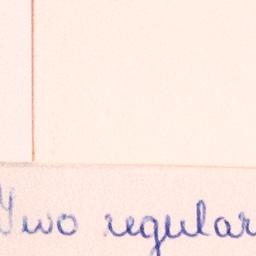 Two regular